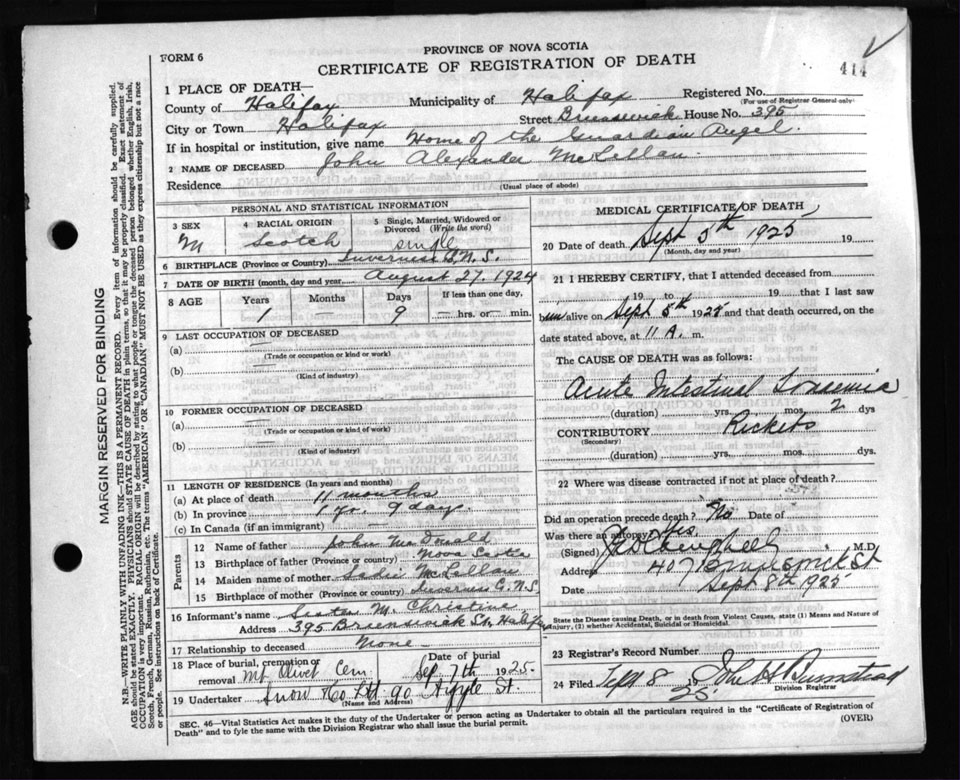 PROVINCE OF NOVA SCOTIA
FORM 6
CERTIFICATE OF REGISTRATION OF DEATH
414
1 PLACE OF DEATH—
County of Halifax Municipality of Halifax Registered No.
(For use of Registrar General only)
City or Town Halifax Street Brunswick House No. 395
If in hospital or institution, give name Home of the Guardian Angel.
2 NAME OF DECEASED John Alexander McLellan
Residence
(Usual place of abode)
PERSONAL AND STATISTICAL INFORMATION
3 SEX 4 RACIAL ORIGIN 5 Single, Married, Widowed or Divorced (Write the word)
M Scotch single
6 BIRTHPLACE (Province or Country) Inverness N.S.
7 DATE OF BIRTH (month, day and year) August 27. 1924
8 AGE Years Months Days If less than one day,
1 9 — hrs. or — min.
9 LAST OCCUPATION OF DECEASED
(a) —
(Trade or occupation or kind or work)
(b) —
(Kind of industry)
10 FORMER OCCUPATION OF DECEASED
(a) —
(Trade or occupation or kind or work)
(b) —
(Kind of industry)
11 LENGTH OF RESIDENCE (In years and months)
(a) At place of death 11 months
(b) In province 1 yr. 9 day.
(c) In Canada (if an immigrant) —
Parents
12 Name of father John McDonald
13 Birthplace of father (Province or Country) Nova Scotia
14 Maiden name of mother McLellan
15 Birthplace of mother (Province or Country) Inverness C. N.S.
16 Informant's name Sister M. Christine
Address 395 Brunswick St, Halifax
17 Relationship to deceased None
18 Place of burial, cremation or removal Mt Olivet Cem Date of burial Sep 7th 1925
19 Undertaker Snow & Co Ltd 90 Argyle St.
(Name and Address)
MEDICAL CERTIFICATE OF DEATH
20 Date of death Sept 5th 1925 19
(Month, day and year)
21 I HEREBY CERTIFY, that I attended deceased from
19 to 19 that I last saw
him alive on Sept 5th 1925 and that death occurred, on
date stated above, at 11 A. m.
The CAUSE OF DEATH was as follows:
Acute Intestinal Toxemia
(duration) yrs. mos. 2 dys
CONTRIBUTORY Rickets
(Secondary)
(duration) yrs. mos. dys.
22 Where was disease contracted if not at place of death?
Did an operation precede death? No Date of
Was there an autopsy?
(Signed) M.D.
Address 407 Brunswick St
Date Sept 8th 1925
State the Disease causing Death, or in death from Violent Causes, state (1) Means and Nature of Injury, (2) whether Accidental, Suicidal or Homicidal.
23 Registrar's Record Number
24 Filed Sept 8 19 25
Division Registrar
SEC. 46—Vital Statistics Act makes it the duty of the Undertaker or person acting as Undertaker to obtain all the particulars required in the "Certificate of Registration of
Death" and to fyle the same with the Division Registrar who shall issue the burial permit. (OVER)
MARGIN RESERVED FOR BINDING
N.B.—WRITE PLAINLY WITH UNFADING INK—THIS IS A PERMANENT RECORD. Every item of information should be carefully supplied.
AGE should be stated EXACTLY. PHYSICIANS should STATE CAUSE OF DEATH in plain terms, so that it may be properly classified. Exact statement of
OCCUPATION is very important. RACIAL ORIGIN will be described by stating to what people or tongue the deceased person belonged whether English, Irish,
Scotch, French, German, Russian, Ruthenian, etc. The terms "AMERICAN" or "CANADIAN" MUST NOT BE USED as they express citizenship but not a race
or people. See instructions on back of Certificate.